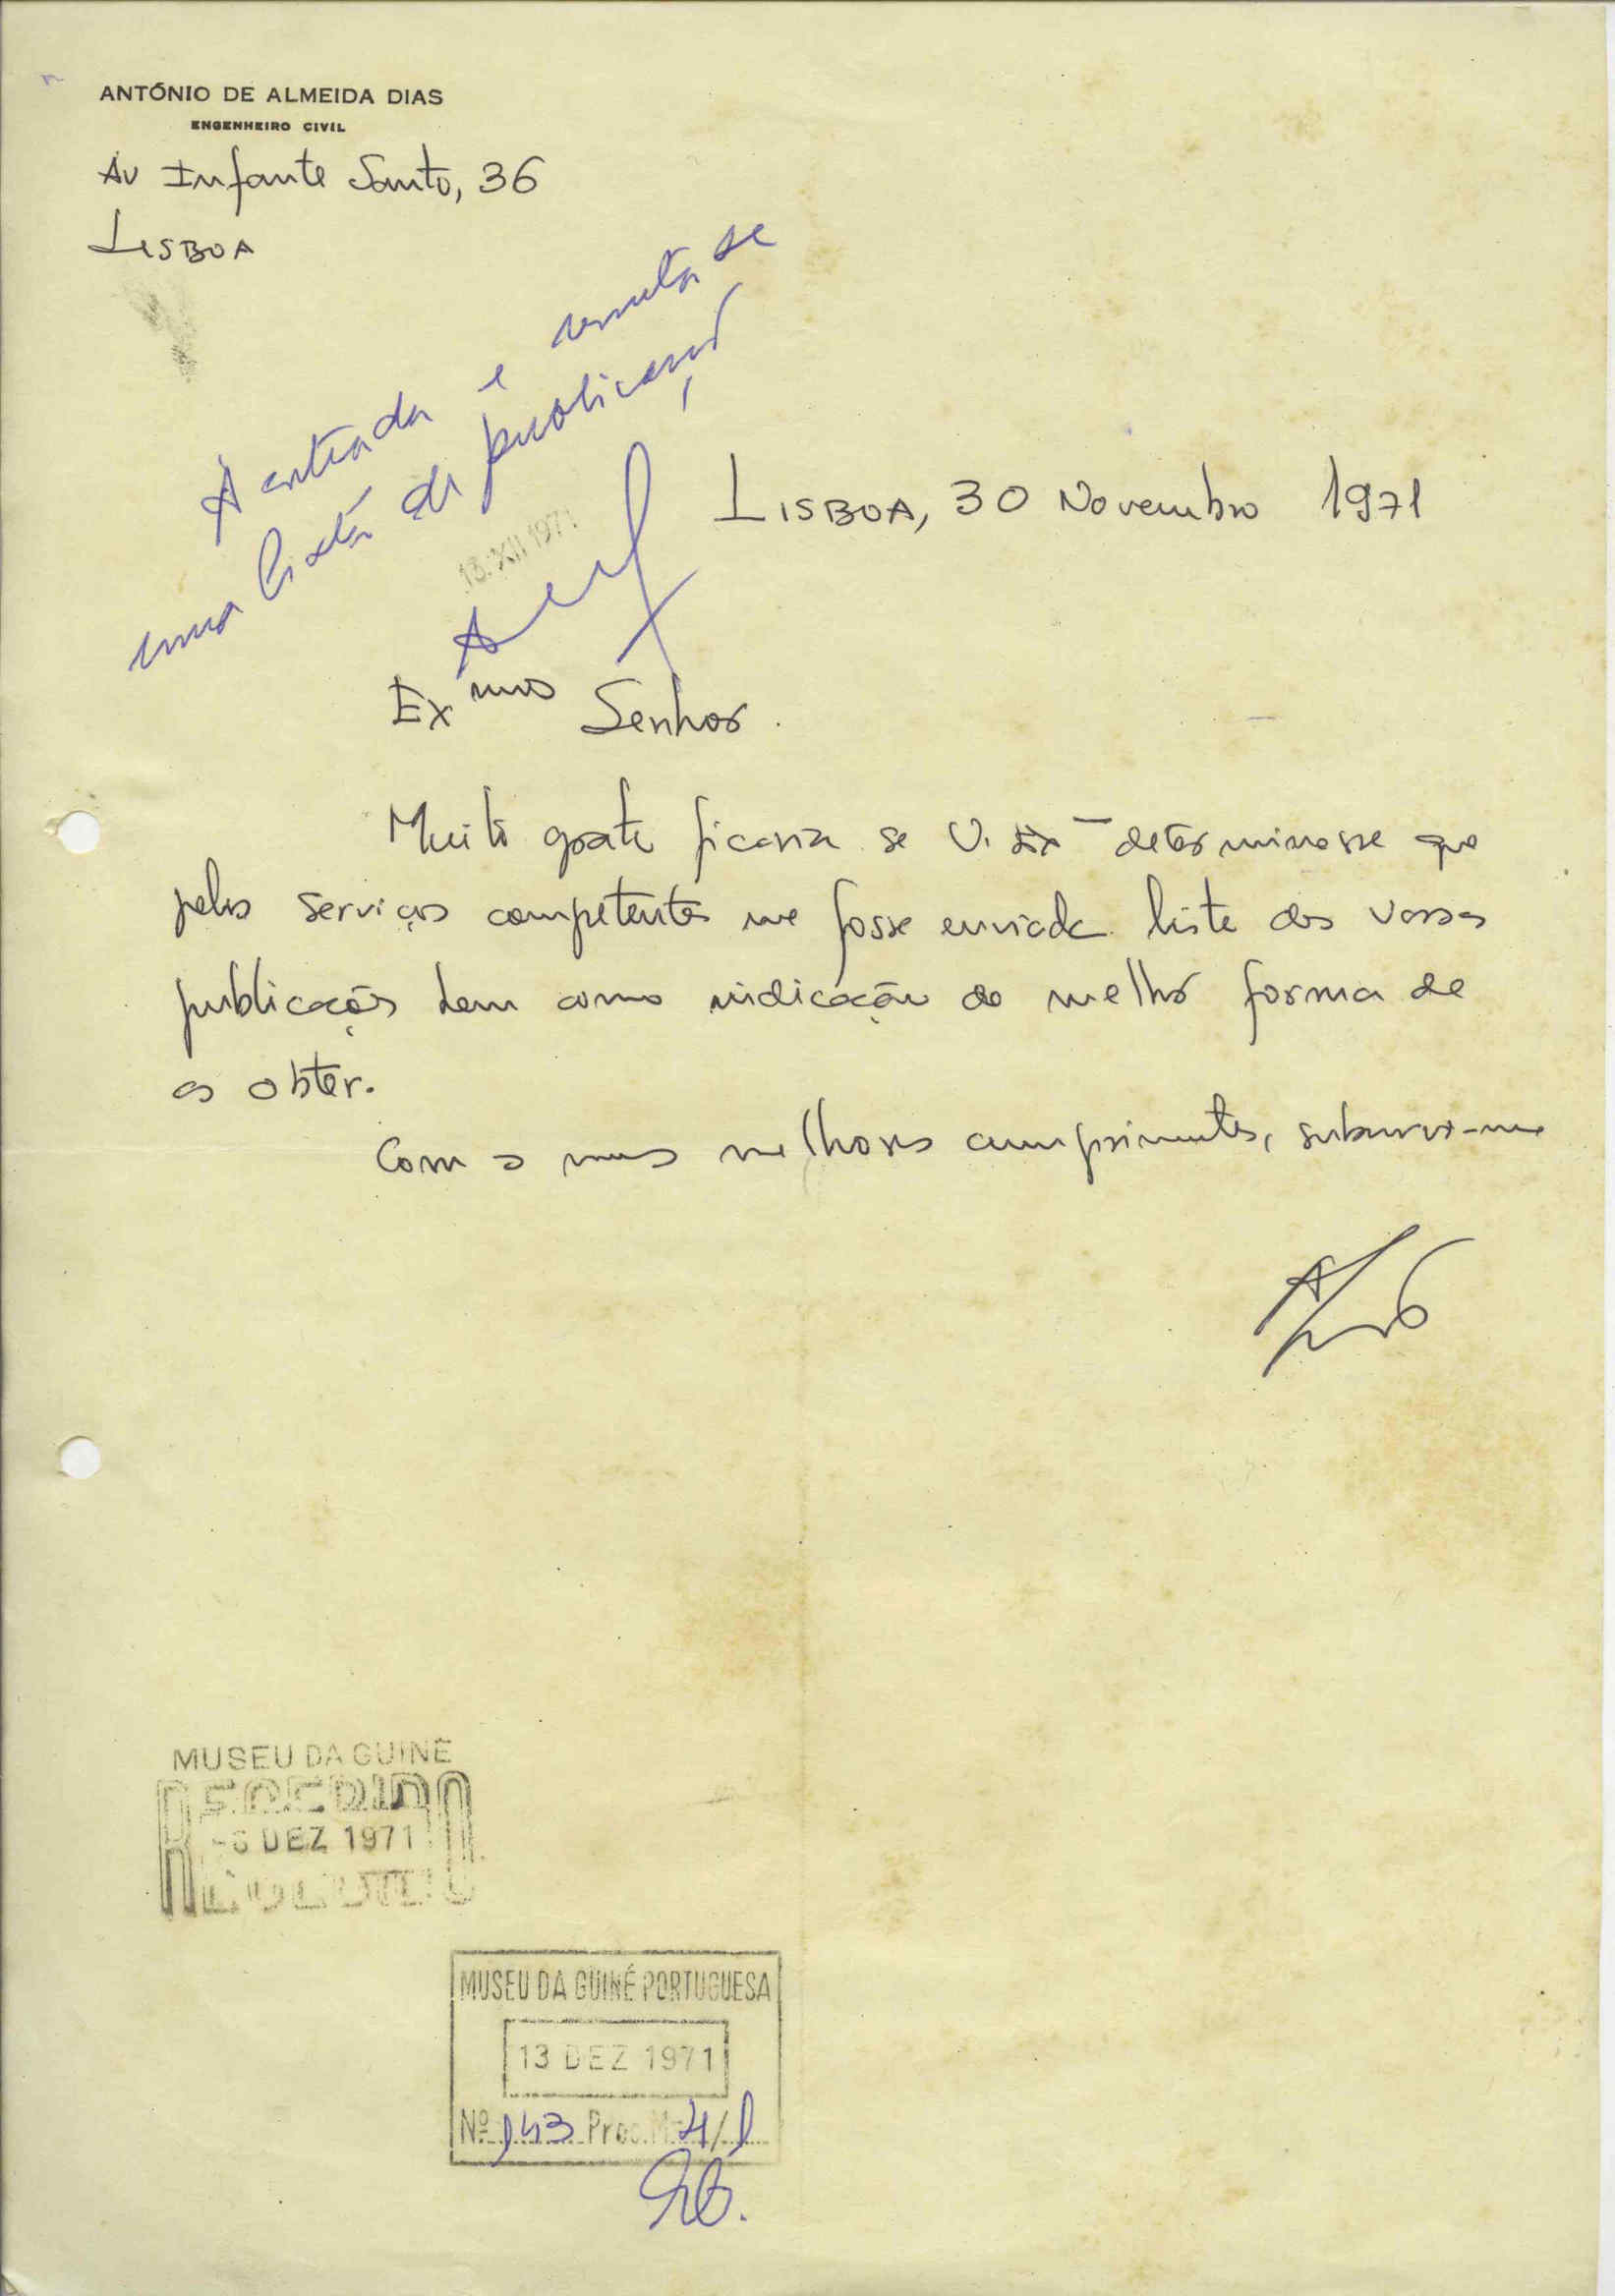 ANTÓNIO DE ALMEIDA DIAS
ENGENHEIRO CIVIL
Av Infante Santo, 36
LISBOA
À entrada e remeta se
uma lista de publicações
13. XII 1971
LISBOA, 30 Novembro 1971
Exmo Senhor.
Muito grato ficaria se V. Exa determinasse que
pelos serviços competentes me fosse enviada lista das vossas
publicações bem como indicação da melhor forma de
as obter.
Com os meus melhores cumprimentos, subscrevo-me
MUSEU DA GUINÉ
RECEBIDO
-6 DEZ 1971
MUSEU DA GUINÉ PORTUGUESA
13 DEZ 1971
Nº 143 Proc. M-4/1